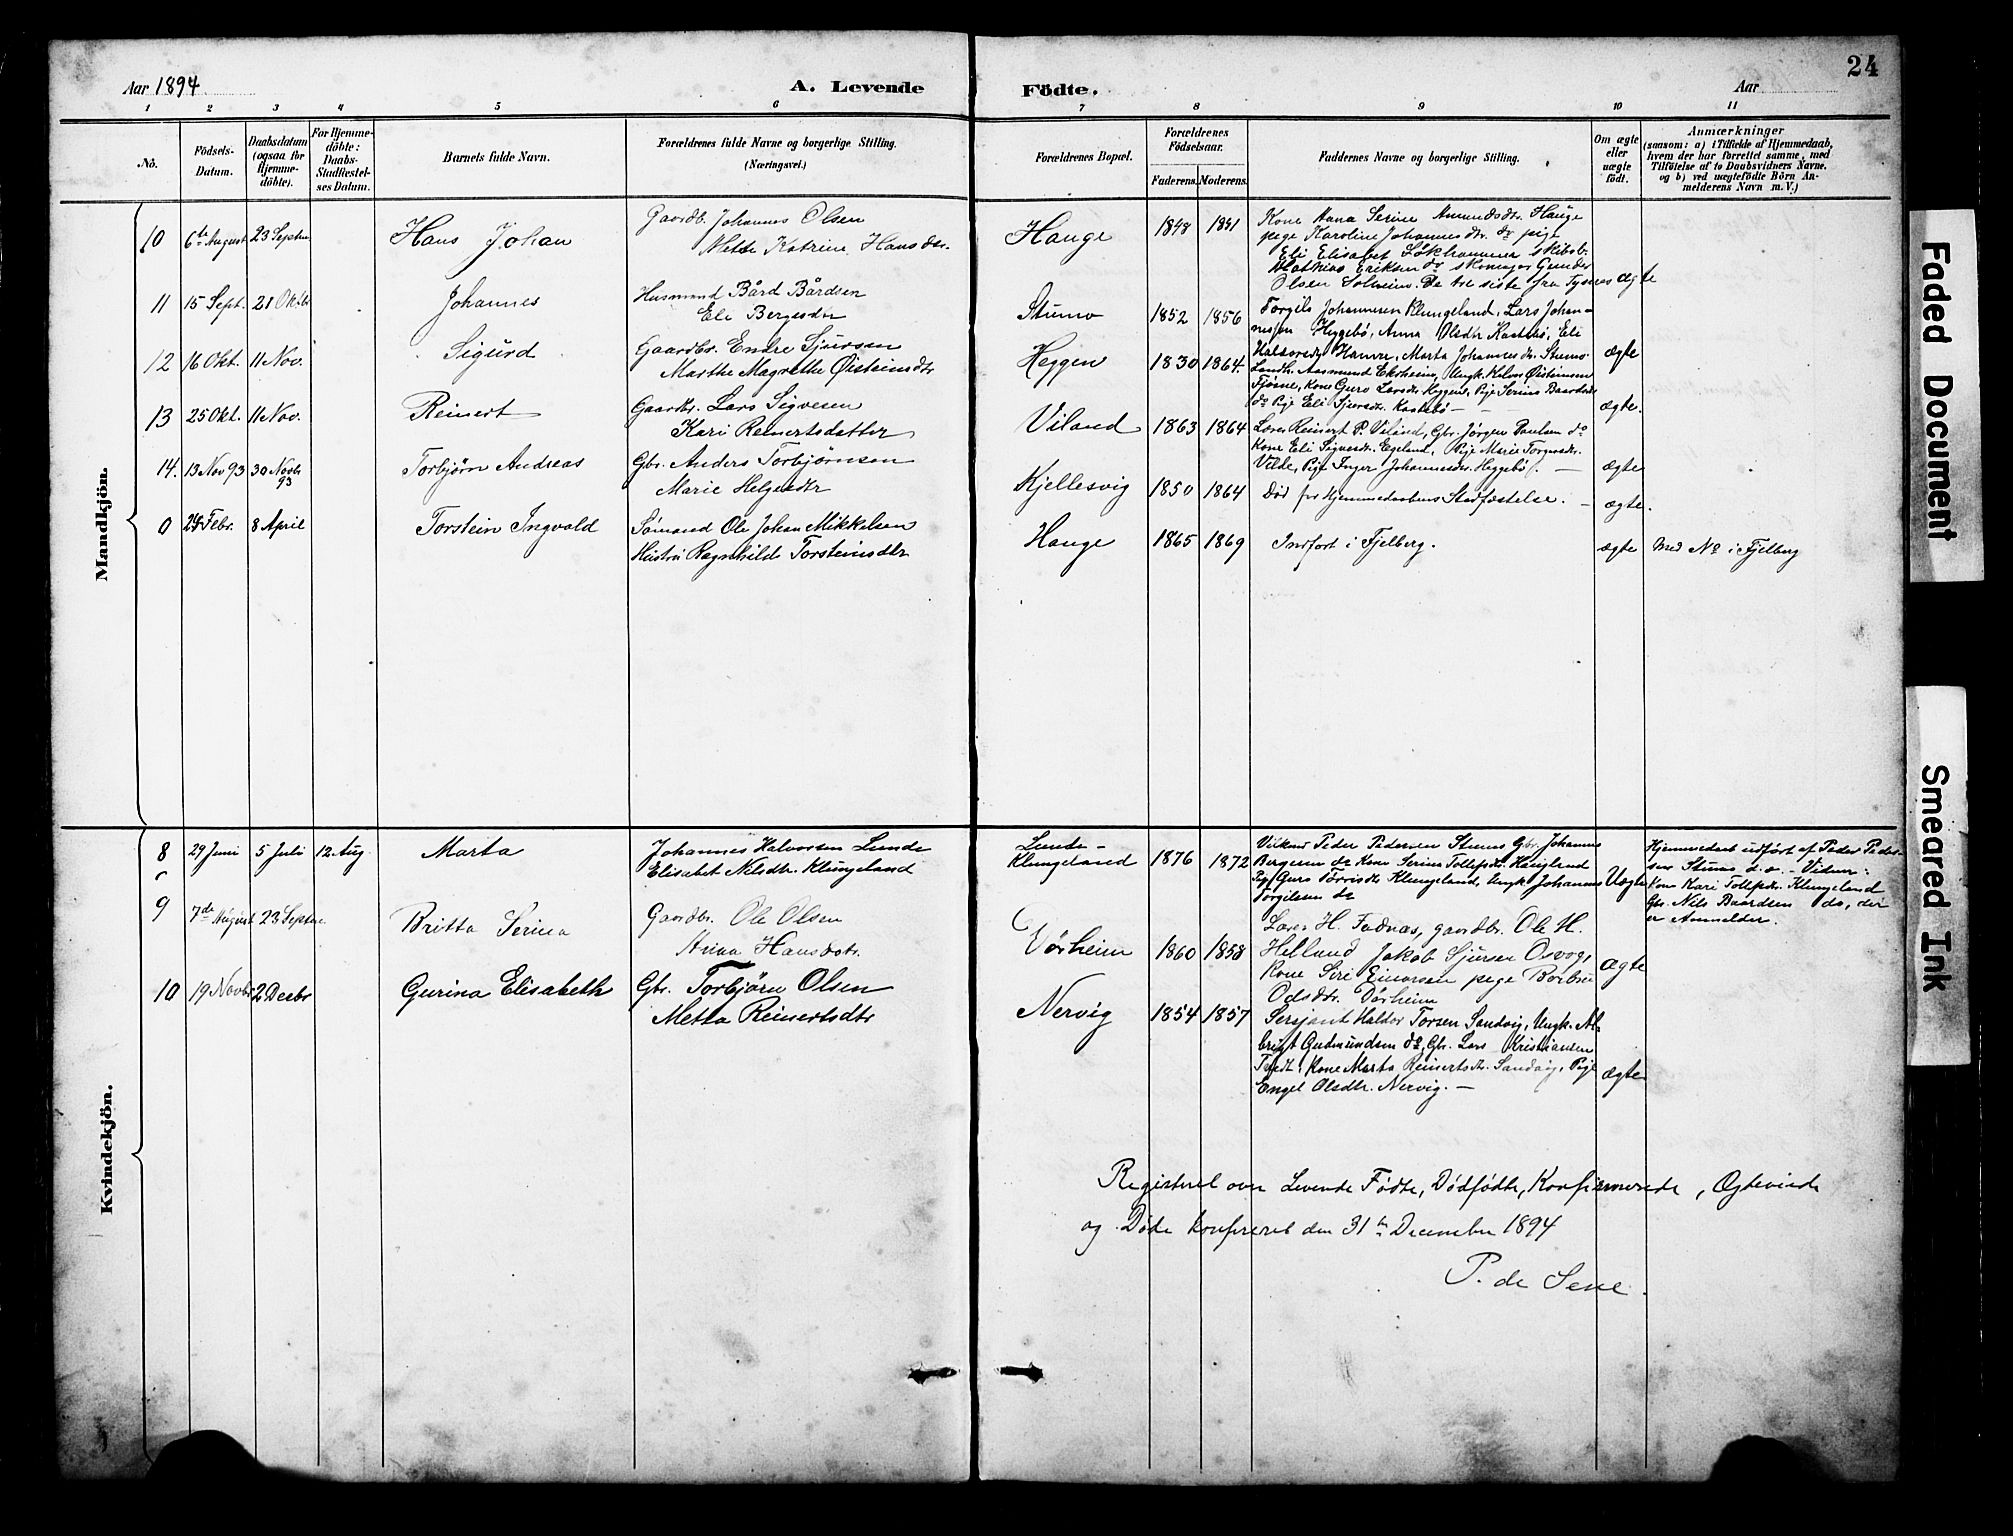 24
Aar 1894
A. Levende Födte.
Aar
1 2 3 4 5 6 7 8 9 10 11
No.
Födsels-Datum.
Daabsdatum (ogsaa for Hjemme-döbte).
For Hjemme-döbte: Daabs-Stadfæstel-ses Datum.
Barnets fulde Navn.
Forældrenes fulde Navne og borgerlige Stilling.
(Næringsvei.)
Forældrenes Bopæl.
Forældrenes Födselsaar.
Faderens. Moderens.
Faddernes Navne og borgerlige Stilling.
Om ægte eller uægte født.
Anmærkninger
(saasom: a) i Tilfælde af Hjemmedaab,
hvem der har forrettet samme, med
Tilföielse af to Daabsvidners Navne.
og b) ved uægtefödte Börn An-
melderens Navn m.V.)
Mandkjön.
10 6te August 23 Septbr Hans Johan
Gaardb. Johannes Olsen
Mette Katrine Hansdtr.
Hauge 1848 1851
Kone Anna Serine Amundsdtr. Hauge
pege Karoline Johannesdtr. do pige
Eli Elisabet Lökhammer skibsb.
Mathias Eriksen do skomager Gunder
Olsen Solheim. De tre siste fra Tysnes ægte
11 15 Sept. 21 Oktbr Johannes
Husmand Bård Bårdsen
Eli Bergesdtr
Stumo 1852 1856
Torgils Johannesen Klungeland, Lars Johan-
nessen Heggebö, Anna Olsdtr. Kaatebö, Eli
Halvorsdtr Hamre, Marta Johannesdtr. Stumo
ægte
12 16 Okt. 11 Nov. Sigurd
Gaardbr. Endre Sjursen
Marthe Magrethe Øisteinsdtr
Heggen 1830 1864.
Landh. Aasmund Ekrheim, Ungk. Øisteinsen
Fjösne, Kone Guro Larsdtr Heggen, Pige Serina Baardsdtr
do Pige Eli Sjursdtr. Kaatebö —
ægte.
13 25 Okt. 11 Nov. Reinert
Gaardbr. Lars Sigvesen
Kari Reinertsdatter
Viland 1863 1864
Lærer Reinert P. Viland, Gbr. Jörgen Paulsen do
Kone Eli Sigvesdtr. Egeland, Pige Marie Torgersdtr.
Velde, Pige Inger Johannesdtr. Heggebö. —
ægte
14. 13 Nov 93 30 Novbr 93 Torbjörn Andreas
Gbr. Anders Torbjörnsen
Marie Helgesdtr
Kjellesvig 1850 1864 Död for Hjemmedaabens Stadfæstelse. — ægte.
0 24 Febr. 8 April Torstein Ingvald
Sömand Ole Johan Mikkelsen
Hustru Ragnhilde Torsteinsdtr
Hauge 1865 1869 Indfört i Fjelberg. ægte Med No i Fjelberg
Kvindekjön.
8 29 Juni 5 Juli 12 Aug. Marta
Johannes Halvorsen Lunde
Elisabet Nilsdtr. Klungeland
Lunde-
Klungeland 1876 1872
Peder Pedersen Stumo Gbr. Johannes
Bergesen do Kone Serina Tollefsdtr. Hauglund
Pige Guro Torrisdtr Klungeland, Ungk. Johannes
Torgilsen do
Uægte
Hjemmedøbt udfört af Peder Peder-
sen Stumo d.o. — Vidner:
Kone Kari Tollefsdtr. Klungeland
Gbr. Nils Baardsen do, der
er Anmelder.
9 7de August 23 Septbr Britta Serina
Gaardbr. Ole Olsen
Anna Hansdotr.
Vörheim 1860 1858
Lærer H. Fadnæs, gaardbr. Ole H.
Helland Jakob Sjursen Osvog,
Kone Siri Einarsen pege Borbru
Odsdtr. Vörheim
Ægte
10 19 Novbr 2 Desbr Gurina Elisabeth
Gbr. Torbjörn Olsen
Metta Reinertsdtr
Nervig 1854 1857
Sersjant Haldor Torsen Sandvig, Ungk. Al-
brigt Gudmundsen do, Gbr. Lars Kristiansen
Tvedt, Kone Marta Reinertsdtr. Sandvig, Pige
Engel Olsdtr. Nervig. —
ægte
Registeret over Levende Födte, Dödfödte, Konfirmerede, Ægteviede
og Döde konfereret den 31te December 1894
P. de Sene.
Faded Document
Smeared Ink